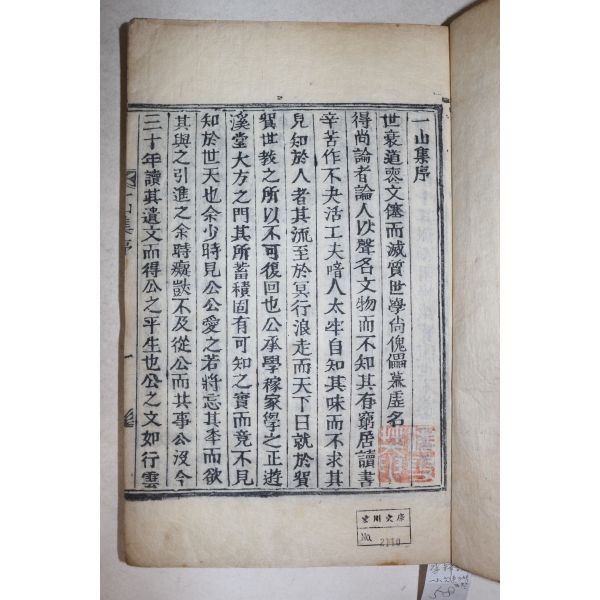 一山集序
世衰道喪文僿而滅質世學尙傀儡慕虛名
得尚論者論人以聲名文物而不知其有窮居讀書
辛苦作不夬活工夫喑人太牢自知其味而不求其
見知於人者其流至於冥行浪走而天下日就於貿
貿世敎之所以不可復回也公承學稼家學之正遊
溪堂大方之門其所蓄積固有可知之實而竟不見
知於世天也余少時見公公愛之若將忘其年而欲
其與之引進之余時癡獃不及從公而其事公沒今
三十年讀其遺文而得公之平生也公之文如行雲
一山集序
一
文庫
No. 2140